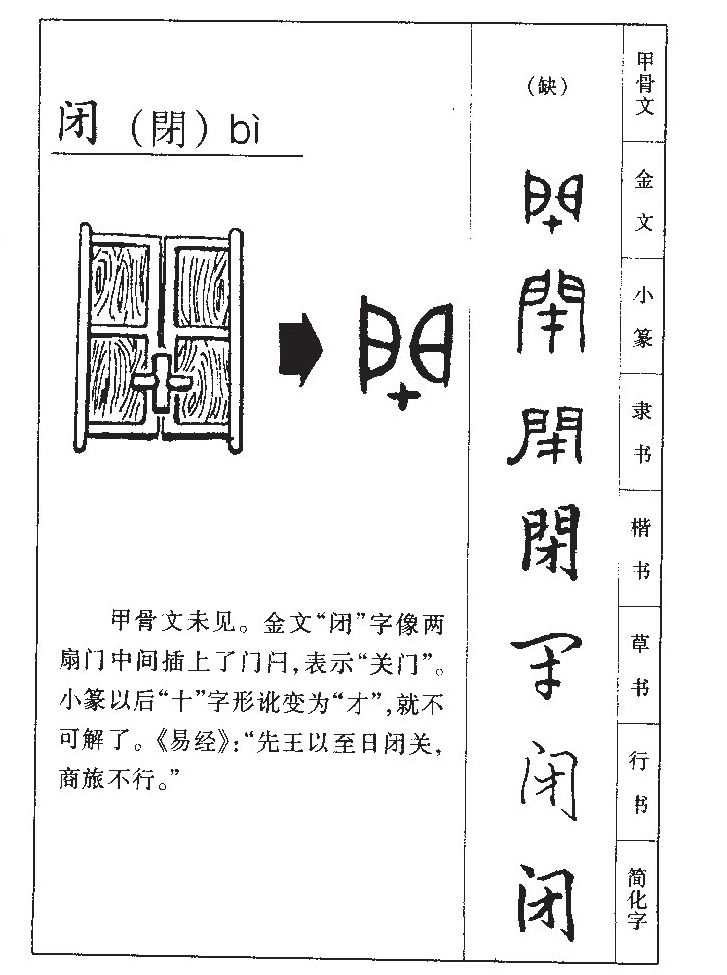 闭（閉）bì
甲骨文未见。金文“闭”字像两
扇门中间插上了门闩，表示“关门”。
小篆以后“十”字形讹变为“才”，就不
可解了。《易经》：“先王以至日闭关，
商旅不行。”
（缺）
甲骨文
金文
小篆
隶书
楷书
閉
草书
行书
闭
简化字
闭